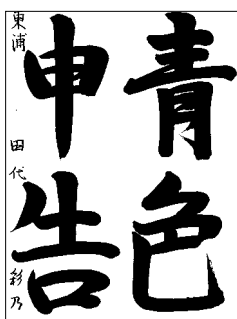 青色
申告
東浦 田代 彩乃